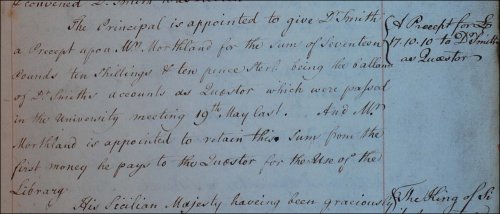 convened Dr. Smith
The Principal is appointed to give Dr Smith
a Precept upon Mr. Morthland for the Sum of Seventeen
pounds ten Shillings & ten pence Sterl: being the ballance
of Dr. Smiths accounts as Quæstor which were passed
in the University meeting 19th May last. And Mr
Morthland is appointed to retain this Sum from the
first money he pays to the Quæstor for the Use of the
Library
His Sicilian Majesty haveing been graciously
A Precept for
17.10.10 to Dr Smith
as Quæstor
The King of